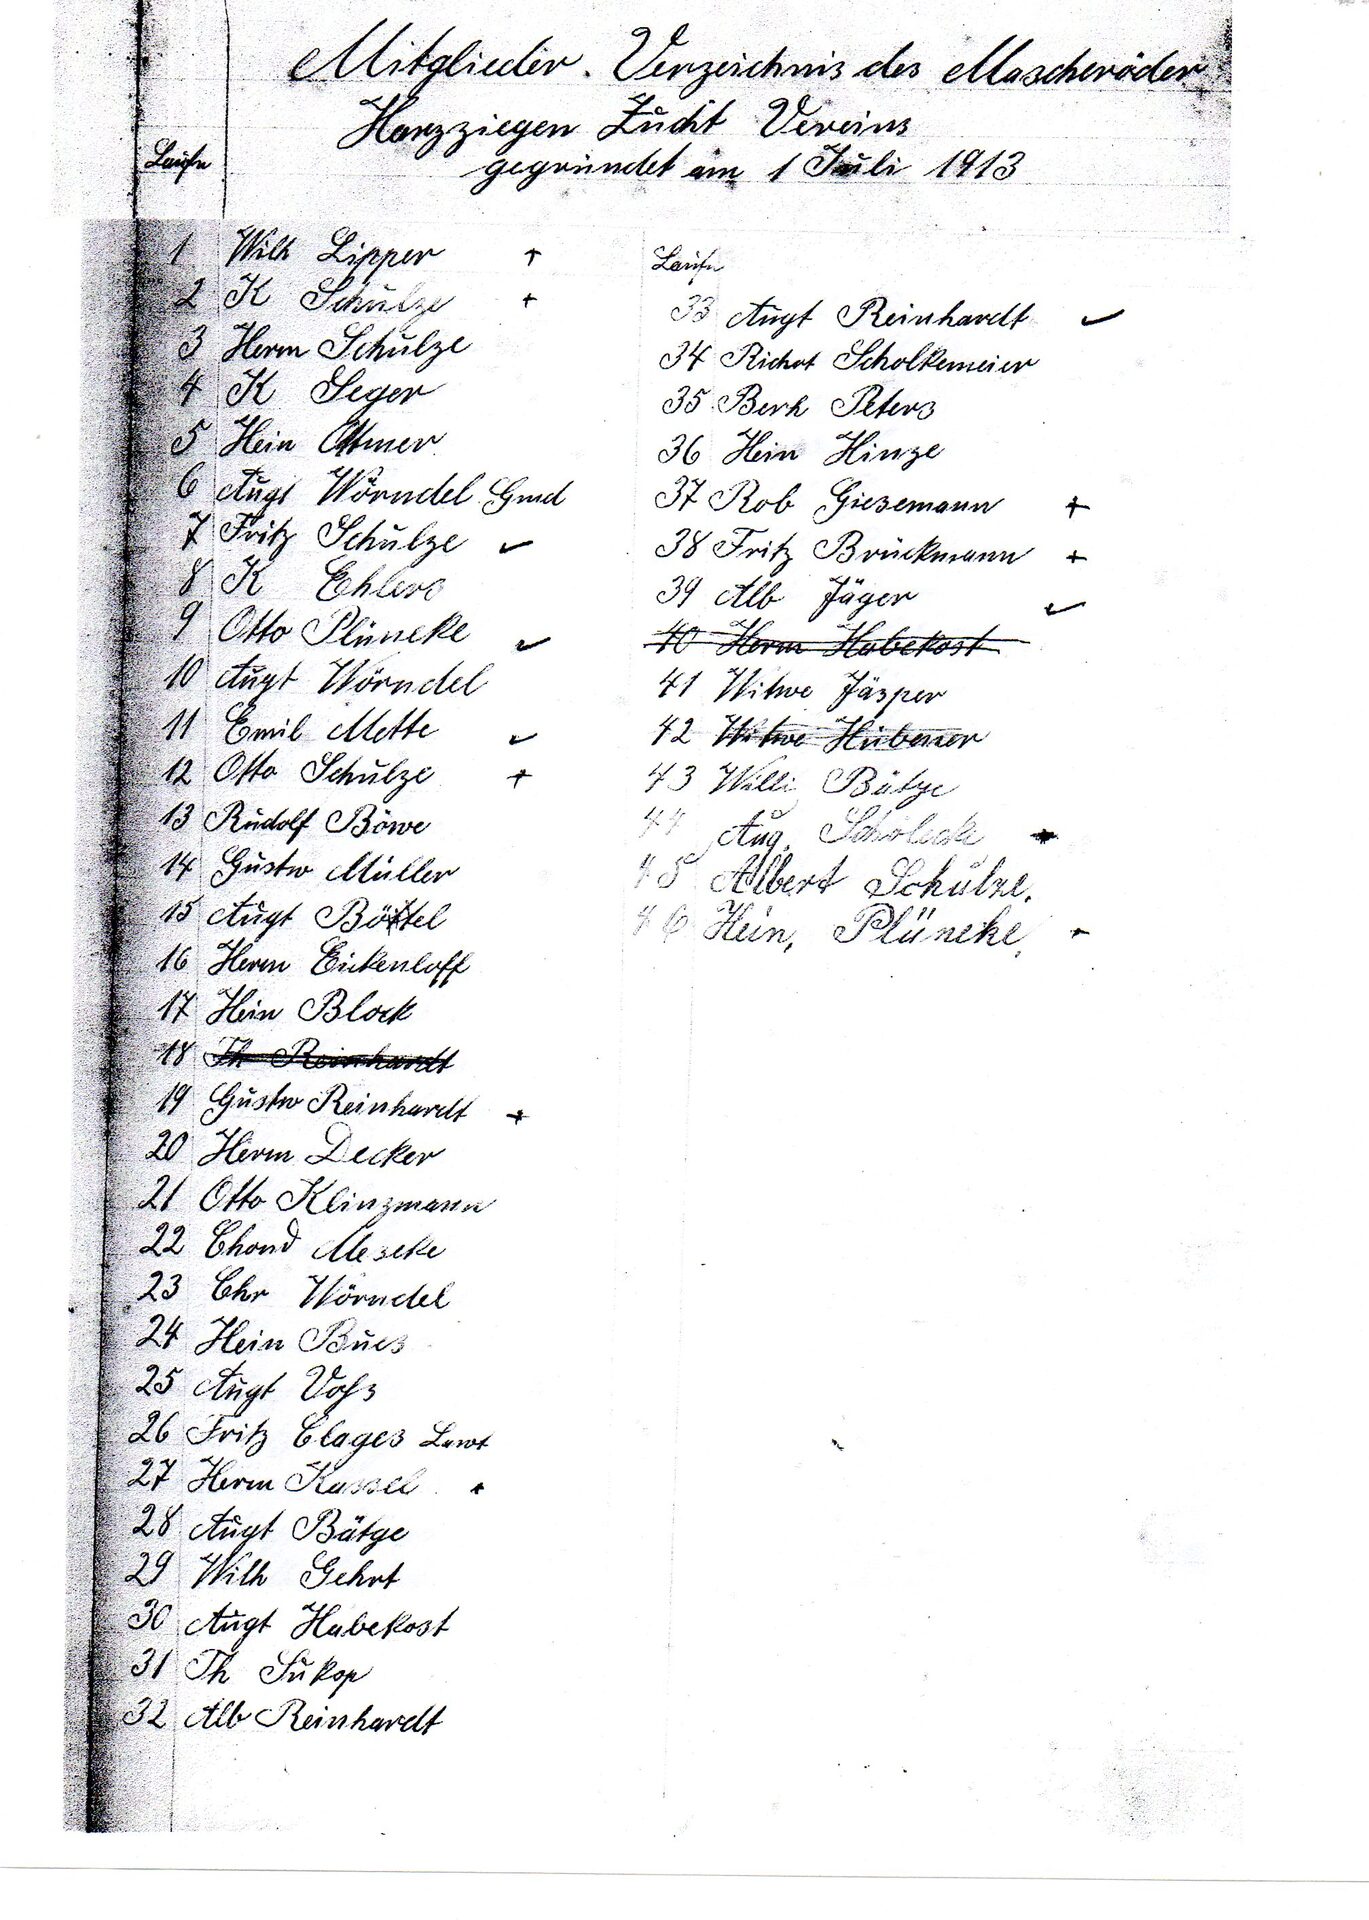 Mitglieder. Verzeichnis des Mascheröder
Harzziegen Zucht Vereins
gegründet am 1 Juli 1913
Laufn
1 Wilh Lipper +
2 K Schulze +
3 Herm Schulze
4 K Seger
5 Hein Ottmer
6 Augt Wörndel Gmd
7 Fritz Schulze ✓
8 K Ehlers
9 Otto Plüneke ✓
10 Augt Wörndel
11 Emil Mette ✓
12 Otto Schulze +
13 Rudolf Böwe
14 Gustav Müller
15 Augt Böttel
16 Herm Eickenloff
17 Hein Block
18 Th Reinhardt
19 Gustav Reinhardt +
20 Herm Decker
21 Otto Klinzmann
22 Meseke
23 Chr Wörndel
24 Hein Bues
25 Augt Voſs
26 Fritz Clages
27 Herm Kassel +
28 Augt Bätge
29 Wilh Gehrt
30 Augt Habekost
31 Th Sukop
32 Alb Reinhardt
Laufn
33 Augt Reinhardt ✓
34 Scholkemeier
35 Berh Peters
36 Hein Hinze
37 Rob Giesemann +
38 Fritz Brückmann +
39 Alb Jäger ✓
40 Herm Habekost
41 Witwe Jäsper
42 Witwe Hübener
43 Willi Bätge
44 Aug. +
45 Albert Schulze.
46 Hein, Plüneke, +